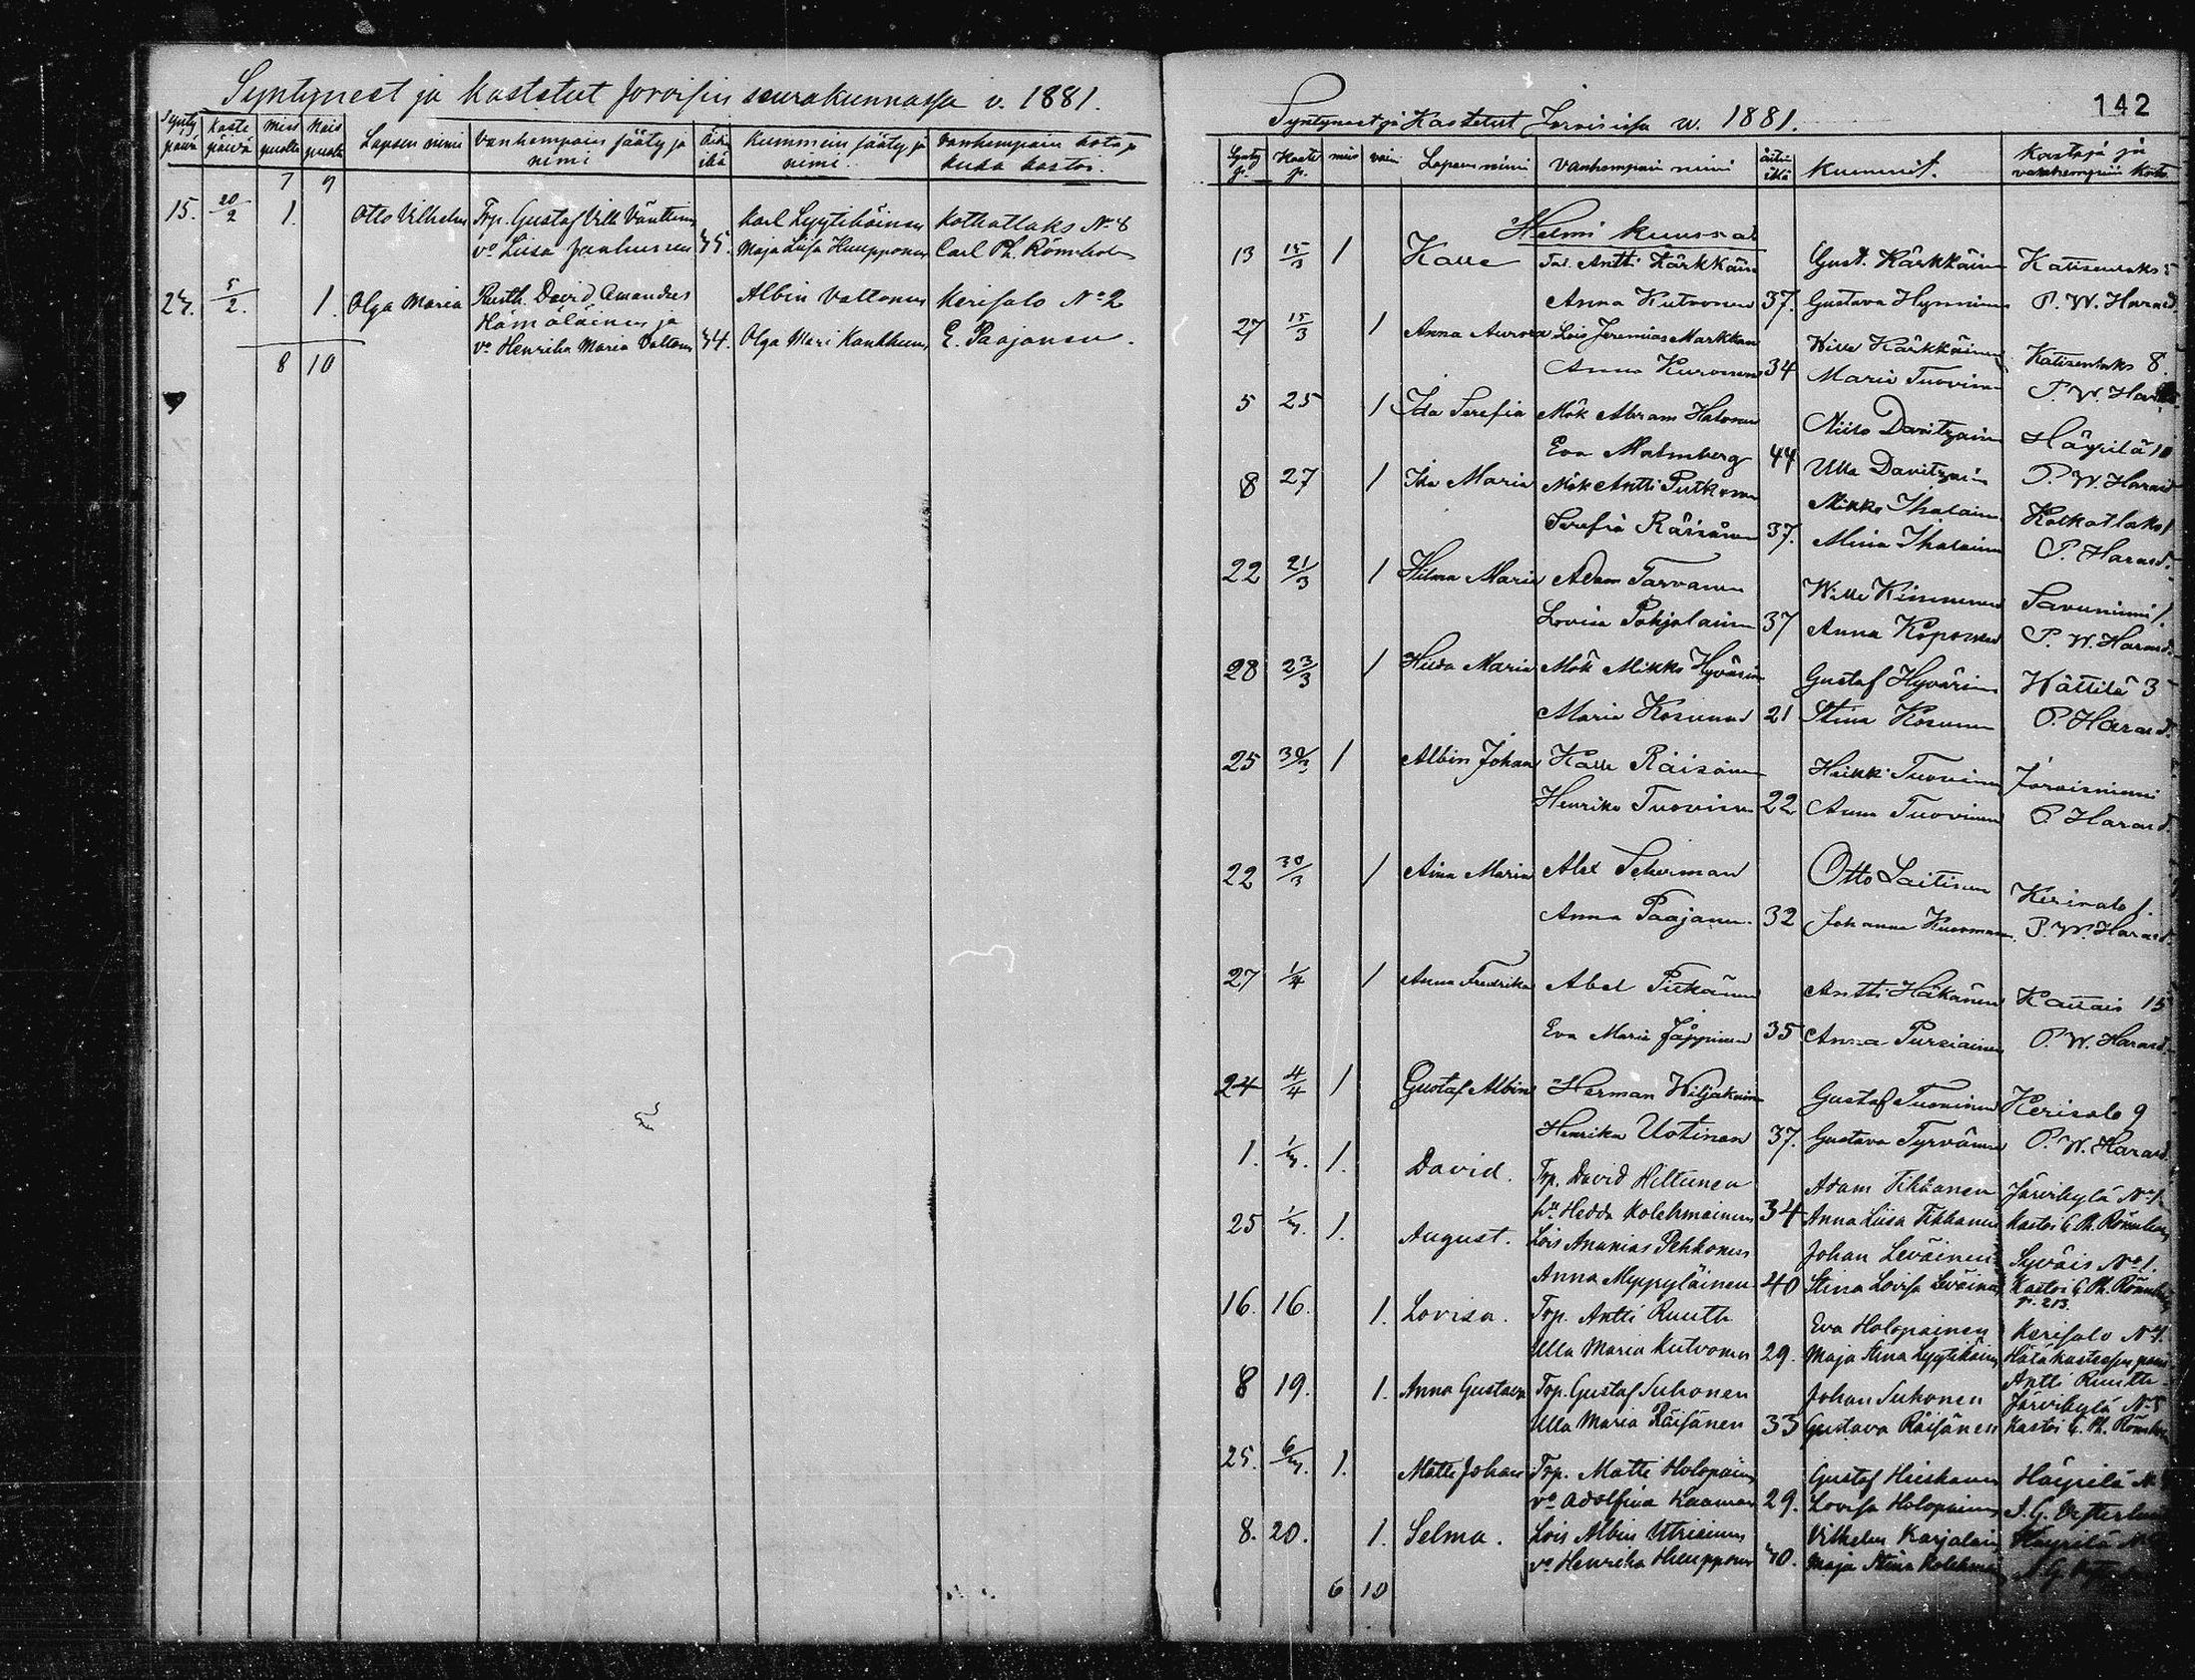 Syntyneet ja kastetut Joroisin seurakunnassa v. 1881.
Synty päivä kaste päivä mies puolta Nais puolta Lapsen nimi vanhempain sääty ja nimi Äidin ikä kummein sääty ja nimi vanhempain koto ja kuka kastoi.
7 9
15. 20/2 1. Otto Vilhelm Trp. Gustaf Vilh Vänttinen karl Lyytikäinen kotkatlaks No 8
vo Liisa 45. Maja Liisa Huupponen Carl Ph. Römholm
24. 5/2. 1. Olga Maria Rusth. David Amandus Albin Valtonen kerisalo No 2
Hämäläinen ja
vo Henrika Maria Valtonen 44. Olga Mari E. Paajanen.
8 10
142
Syntyneet ja Kastetut Joroisissa w. 1881.
Synty p. Kaste p. mies vaim Lapsen nimi Vanhempain nimi äitin ikä Kummit. Kastaja ja vanhempain koto
Helmi kuussa
13 15/3 1 Kalle Tal. Antti Kärkkäin Gust. Kärkkäin Katisenlaks 5
Anna Kutvonen 37. Gustava Hynninen P. W. Harald.
27 15/3 1 Anna Aurora Lois Jeremias Markkan Wille Kärkkäinen Katisenlaks 8.
Anna Kuronen 34 Maria Tuovinen P. W. Harald.
5 25 1 Ida Serefia Mök Abram Halonen Niilo Davitzain Häyrilä 10
Eva Malmberg 44 Ulla Davitzain P. W. Harald
8 27 1 Ida Maria Mök Antti Putkonen Mikko Ihalain Kotkatlaks 1
Serefia Räisänen 37. Miina Ihalainen P. Harald.
22 21/3 1 Hilma Maria Adam Tarvanen Wille Kinnunen Savuniemi 1.
Lovisa Pohjolainen 37 Anna Koponen P. W. Harald.
28 23/3 1 Hilda Maria Mök Mikko Hyvärin Gustaf Hyvärinen Wättilä 3
Maria Kosunen 21 Stina Kosunen P. Harald.
25 30/3 1 Albin Johan Kalle Räisänen Heikki Tuovinen Joroisniemi
Henrika Tuovinen 22 Anna Tuovinen P. Harald.
22 30/3 1 Aina Maria Alex Scherman Otto Laitinen Kerisalo 1.
Anna Paajanen. 32 Johanna P. W. Harald.
27 1/4 1 Anna Fredrika Abel Pitkänen Antti Häkänen Kaitais 15
Eva Maria Jäppinen 35 Anna Pursiainen P. W. Harald.
24 4/4 1 Gustaf Albin Herman Wiljakain Gustaf Tuovinen Kerisalo 9
Henrika Uotinen 37. Gustava Tyrväinen P. W. Harald.
1. 1/4. 1. David. Trp. David Hiltunen Adam Tikkanen Järvikylä No 1.
hu Hedda Kolehmainen 34 Anna Liisa Tikkanen kastoi C. Ph. Römholm
25 1/4. 1. August. Lois Ananias Pehkonen Johan Leväinen Syväis No 1.
Anna Myyryläinen 40 Stina Lovisa Leväinen Kastoi C. Ph. Römholm
p. 213.
16. 16. 1. Lovisa. Trp. Antti Ruuth Eva Holopainen Kerisalo No 1.
Ulla Maria Kutvonen 29. Maja Stina Lyytikäin Hätäkasteesen pani
Antti Ruuth
8 19. 1. Anna Gustava Trp. Gustaf Suhonen Johan Suhonen Järvikylä No 5
Ulla Maria Räisänen 33 Gustava Räisänen Kastoi C. Ph. Römholm
25. 6/4. 1. Matti Johan Trp. Matti Holopain Gustaf Hiiskanen Häyrilä
vo Adolfina Kaaman 29. Lovisa Holopainen
8. 20. 1. Selma. Lois Albin Utriainen Vilhelm Karjalain Häyrilä
vo Henrika Huupponen 40. Maja Stina Kolehmai
6 10